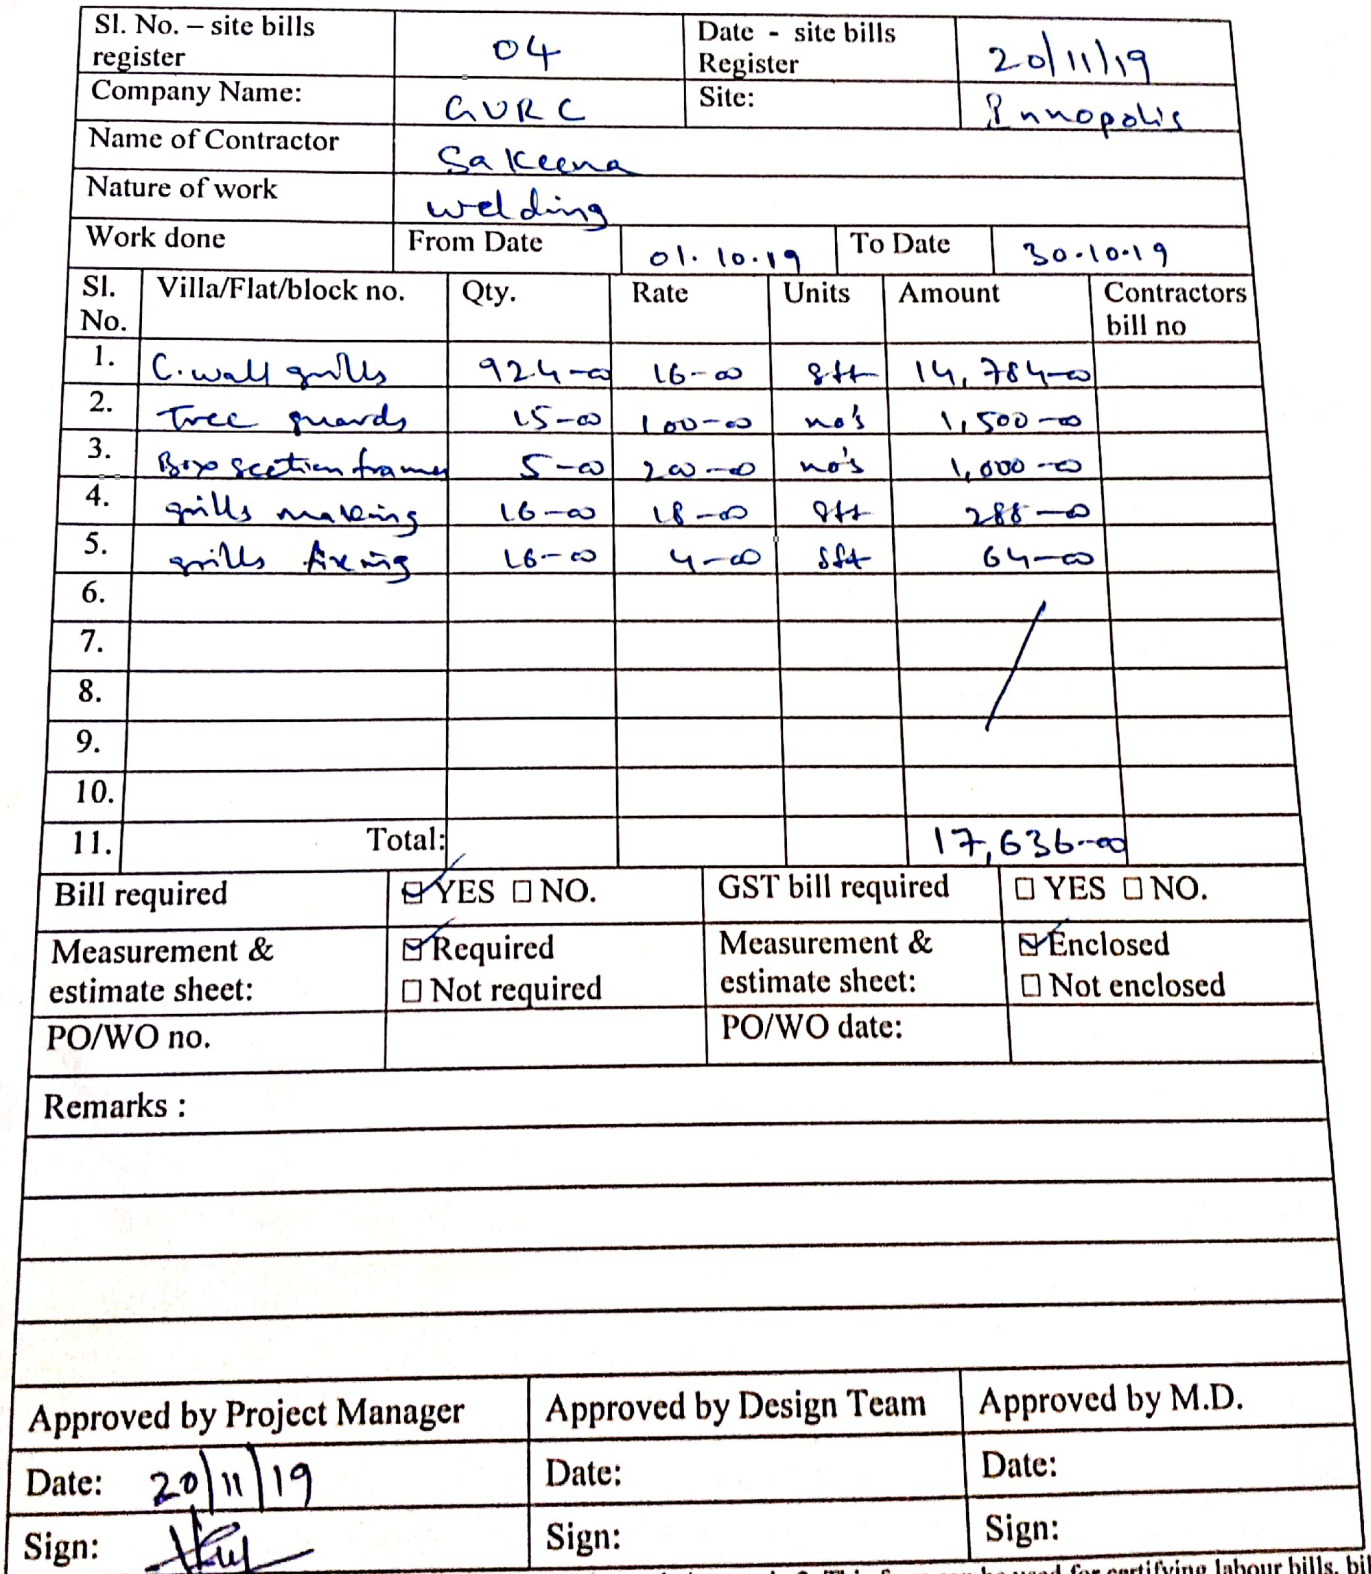 Sl. No. – site bills register 04 Date - site bills Register 20/11/19
Company Name: GVRC Site: Innopolis
Name of Contractor Sakeena
Nature of work welding
Work done From Date 01.10.19 To Date 30.10.19
Sl. No. Villa/Flat/block no. Qty. Rate Units Amount Contractors bill no
1. C.wall grills 924-00 16-00 sft 14,784-00
2. Tree guards 15-00 100-00 no's 1,500-00
3. Box section frames 5-00 200-00 no's 1,000-00
4. grills making 16-00 18-00 sft 288-00
5. grills fixing 16-00 4-00 sft 64-00
6.
7.
8.
9.
10.
11. Total: 17,636-00
Bill required ☑ YES ☐ NO. GST bill required ☐ YES ☐ NO.
Measurement & estimate sheet: ☑ Required ☐ Not required Measurement & estimate sheet: ☑ Enclosed ☐ Not enclosed
PO/WO no. PO/WO date:
Remarks :
Approved by Project Manager Approved by Design Team Approved by M.D.
Date: 20/11/19 Date: Date:
Sign: Sign: Sign: